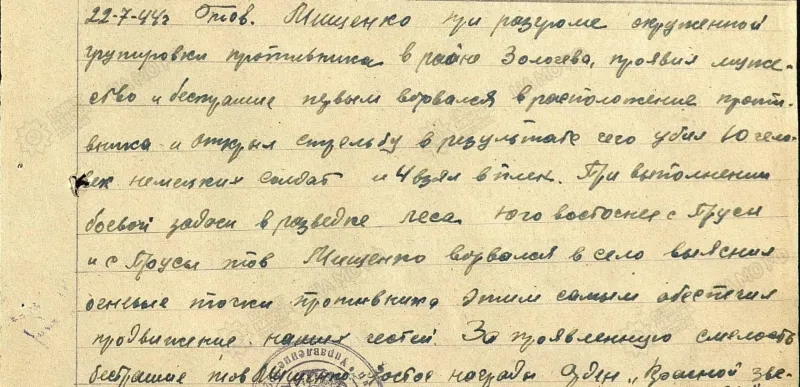 22-7-44г тов. Мищенко при разгроме окруженной
групировки противника в районе Золочева, проявил муже-
ство и бесстрашие первым ворвался в расположение проти-
вника и открыл стрельбу в результате чего убил 10 чело-
век немецких солдат и 4 взял в плен. При выполнении
боевой задачи в разведке леса Юго восточнее с Трусы
и с Трусы тов Мищенко ворвался в село выяснил
огневые точки противника этим самым обеспечил
продвижение наших частей. За проявленную смелость
бестрашие тов Мищенко награды Орден „Красной зве-
Управление